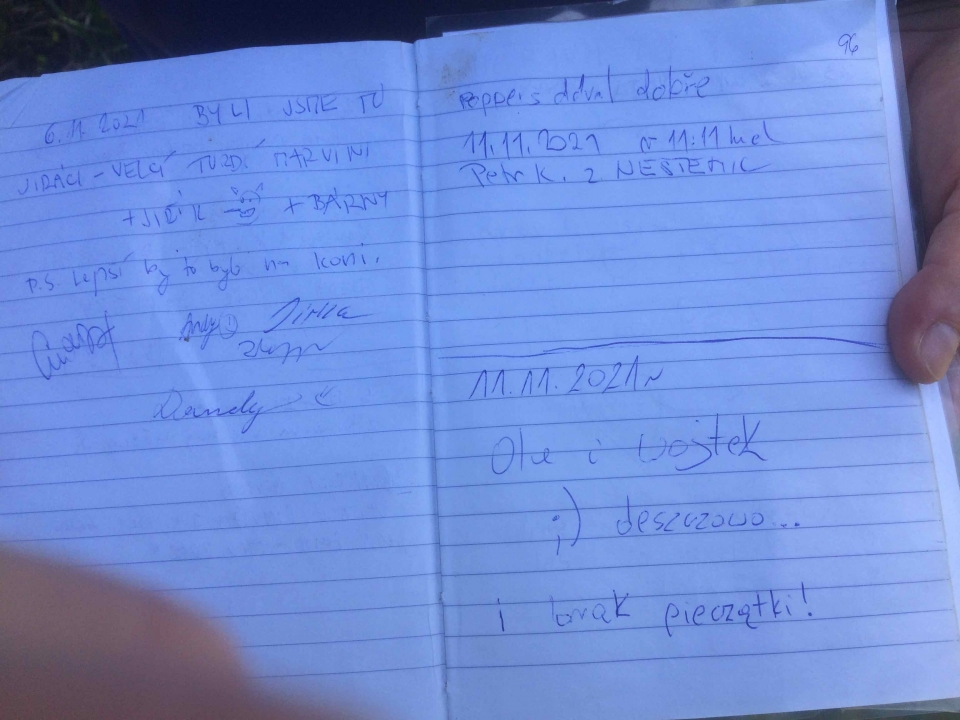 6.11.2021 BYLI JSME TU
JIRÁCI - VELCÍ TVRDÍ MARVINI
+ JIŘÍK + BÁRNY
P.S lepsí by to bylo na koni.
Andy Jirka
Dandy
96
poppers dobře
11.11.2021 v 11:11 hod
Petr K. z
11.11.2021r
Ola i Wojtek
;) deszczowo...
i brak pieczątki!